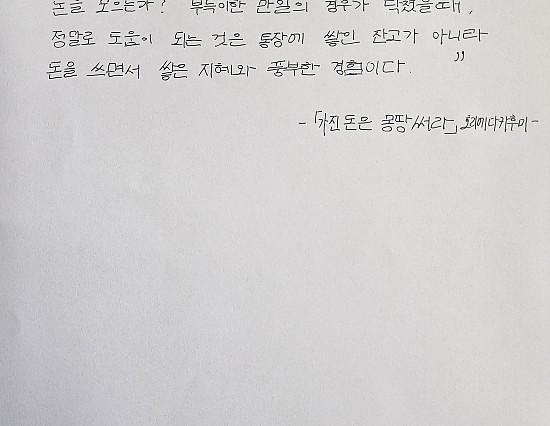 돈을 모으는가? 부득이한 만일의 경우가 닥쳤을 때,
정말로 도움이 되는 것은 통장에 쌓인 잔고가 아니라
돈을 쓰면서 쌓은 지혜와 풍부한 경험이다. "
-「가진 돈은 몽땅 써라」, 호리에 다카후미-